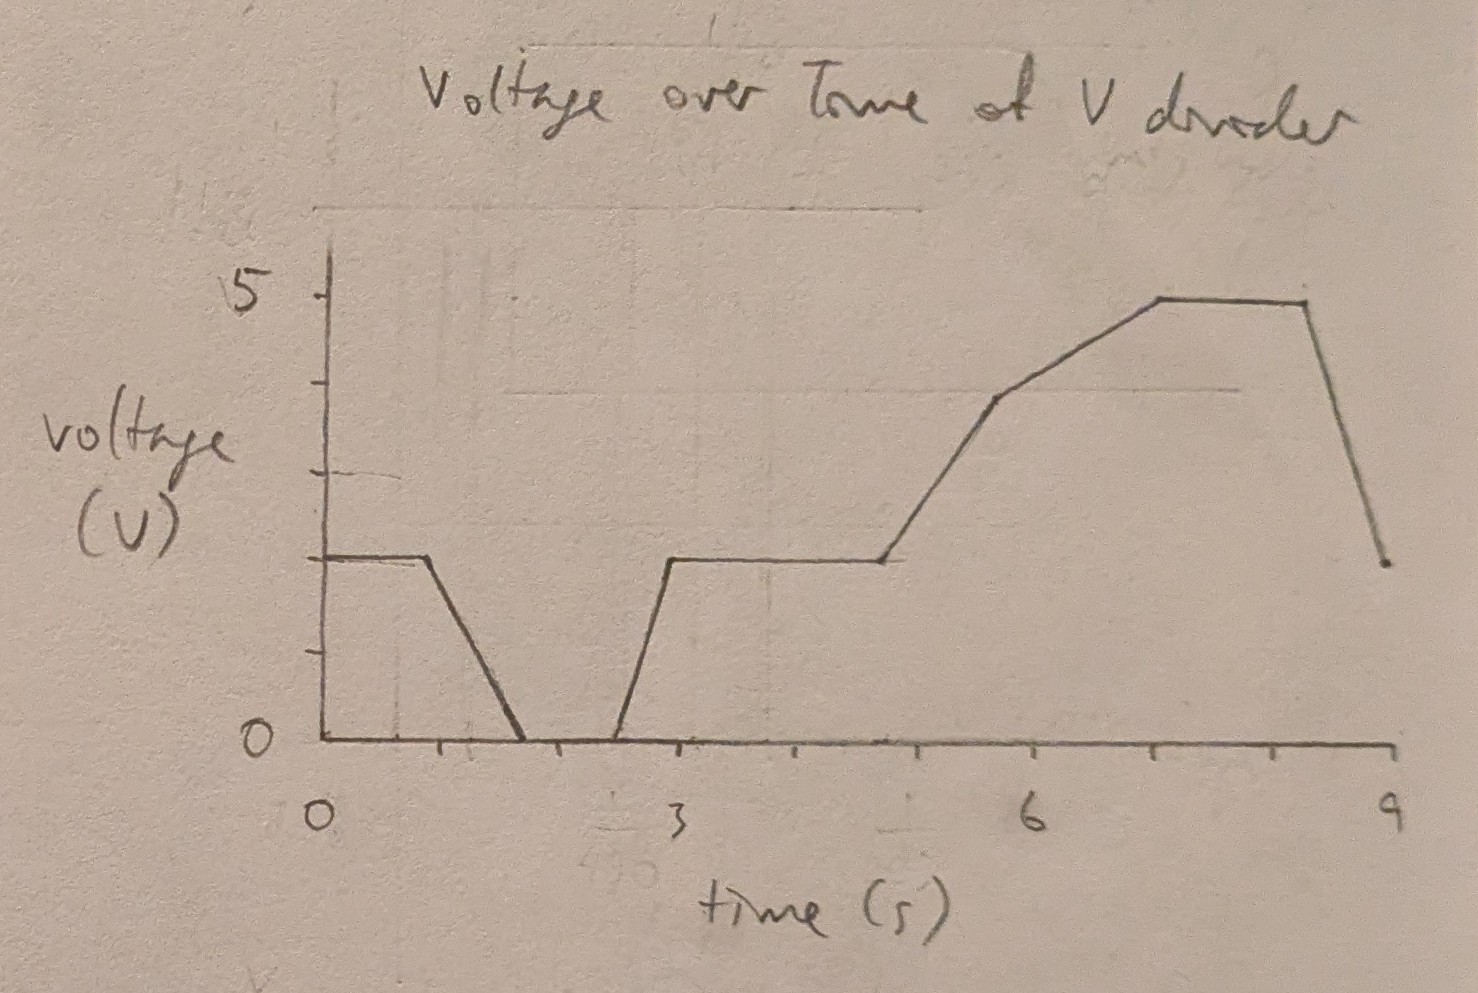 Voltage over Time at V divider
5
voltage
(V)
0
0 3 6 9
time (s)